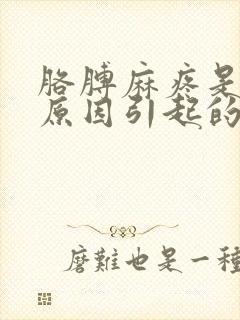 胳膊麻疼是
原因引起的
磨難也是一種